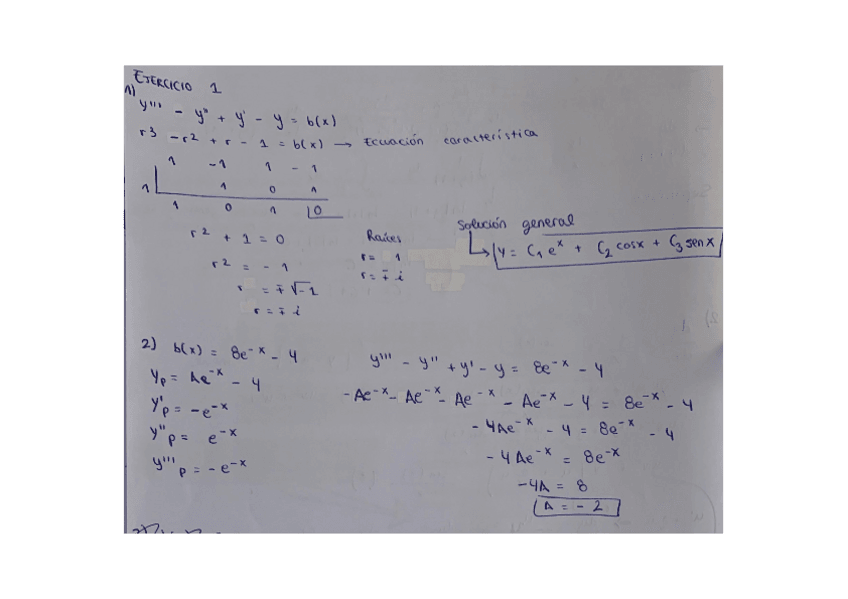 EJERCICIO 1
1)
y''' - y'' + y' - y = b(x)
r3 - r2 + r - 1 = b(x) → Ecuación característica
1 -1 1 -1
1 1 0 1
1 0 1 0
r2 + 1 = 0
r2 = -1
r = ∓ √-1
r = ∓ i
Raíces
r = 1
r = ∓ i
Solución general
y = C1 ex + C2 cosx + C3 senx
2) b(x) = 8e-x - 4
yp = Ae-x - 4
y'p = -e-x
y''p = e-x
y'''p = -e-x
y''' - y'' + y' - y = 8e-x - 4
-Ae-x - Ae-x - Ae-x - Ae-x - 4 = 8e-x - 4
- 4Ae-x - 4 = 8e-x - 4
- 4Ae-x = 8e-x
-4A = 8
A = - 2